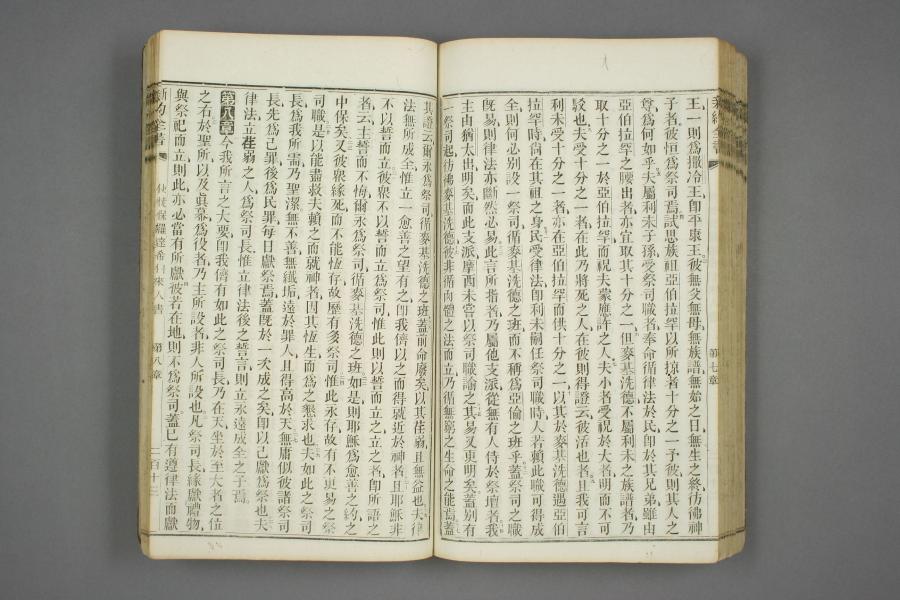 王一則為撒冷王卽平康王彼無父無母無族譜無始之日無生之終彷彿神
子者彼恒為祭司焉試思族祖亞伯拉罕以所掠者十分之一予彼則其人之
尊為何如乎夫屬利未子孫受祭司職者奉命循律法於民卽於其兄弟雖由
亞伯拉罕之腰出者亦宜取其十分之一但麥基洗德不屬利未之族譜者乃
取十分之一於亞伯拉罕而祝夫蒙應許之人夫小者受祝於大者明而不可
駁也夫受十分之一者在此乃將死之人在彼則得證云彼活也者且我可言
利未受十分之一者亦在亞伯拉罕而供十分之一以其於麥基洗德遇亞伯
拉罕時尙在其祖之身民受律法卽利未嗣任祭司職時人若賴此職可得成
全則何必別設一祭司循麥基洗德之班而不稱為亞倫之班乎蓋祭司之職
旣易則律法亦斷然必易此言所指者乃屬他支派從無有人侍於祭壇者我
主由猶太出明矣而此支派摩西未嘗以祭司職論之其易又更明矣蓋別有
一祭司起彷彿麥基洗德彼非循肉體之法而立乃循無窮之生命之能焉蓋
其證云爾永為祭司循麥基洗德之班蓋前命廢矣以其荏弱且無益也夫律
法無所成全惟立一愈善之望有之卽我儕以之而得就近於神者且耶穌非
不以誓而立彼眾不以誓而立為祭司惟此則以誓而立之立之者卽所語之
者云主誓而不悔爾永為祭司循麥基洗德之班如是則耶穌為愈善之約之
中保矣又彼眾緣死而不能恆存故歷有多祭司惟此永存故有不更易之祭
司職是以能盡救夫賴之而就神者因其恆生而為之懇求也夫如此之祭司
長為我所需乃聖潔無不善無纖垢遠於罪人且得高於天無庸似彼諸祭司
長先為己罪後為民罪每日獻祭焉蓋旣於一次成之矣卽以己獻為祭也夫
律法立荏弱之人為祭司長惟律法後之誓言則立永遠成全之子焉
第八章今我所言之大要卽我儕有如此之祭司長乃在天坐於至大者之位
之右於聖所以及眞幕為役者乃主所設者非人所設也凡祭司長緣獻禮物
與祭祀而立則此亦必當有所獻彼若在地則不為祭司蓋已有遵律法而獻
新約全書
第八章
二百十三
第七章